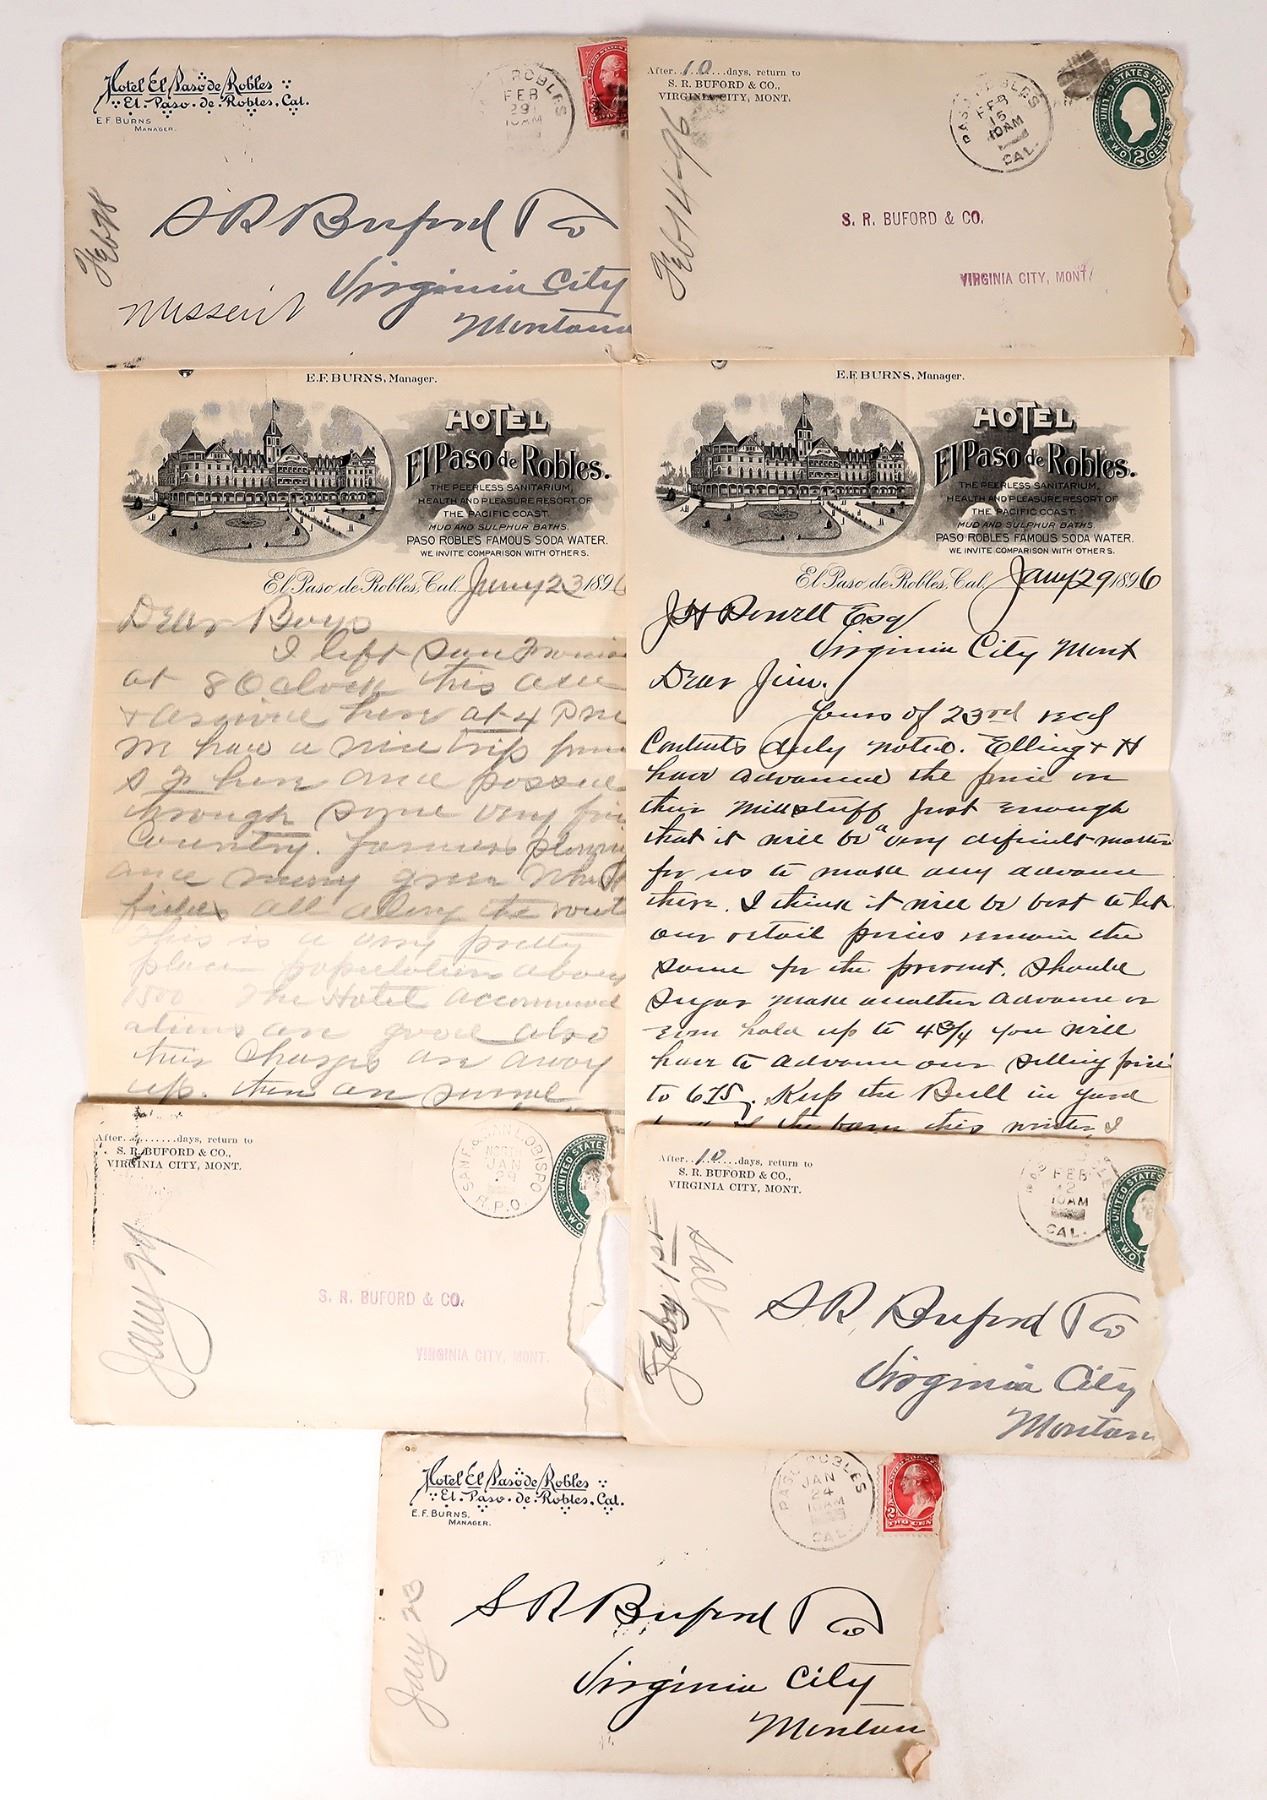 Hotel El Paso de Robles
El. Paso. de. Robles, Cal.
E.F. BURNS
MANAGER.
ROBLES
FEB
29
10AM
Feb 28
S R Buford & Co
Virginia City
Montana
Missent
After 10 days, return to
S. R. BUFORD & CO.,
VIRGINIA CITY, MONT.
PASO ROBLES
FEB
15
10AM
CAL.
UNITED STATES POST
TWO 2 CENTS
Feb 14-96
S. R. BUFORD & CO.
VIRGINIA CITY, MONT.
E.F. BURNS, Manager.
HOTEL
El Paso de Robles.
THE PEERLESS SANITARIUM,
HEALTH AND PLEASURE RESORT OF
THE PACIFIC COAST.
MUD AND SULPHUR BATHS.
PASO ROBLES FAMOUS SODA WATER.
WE INVITE COMPARISON WITH OTHERS.
El Paso de Robles, Cal. Jany 23 1896
Dear Boys
I left San
at 8 Oclock this
& arrive here at 4 P
have a nice trip from
S F here and
through some very
Country. farmers
and many green Wheat
fields all along the route
This is a very pretty
place population about
1500 The Hotel accommod
ations are good also
their Charges are away
up. there are some
E.F. BURNS, Manager.
HOTEL
El Paso de Robles.
THE PEERLESS SANITARIUM,
HEALTH AND PLEASURE RESORT OF
THE PACIFIC COAST.
MUD AND SULPHUR BATHS.
PASO ROBLES FAMOUS SODA WATER.
WE INVITE COMPARISON WITH OTHERS.
El Paso de Robles, Cal. Jany 29 1896
J H Powell Esq
Virginia City Mont
Dear Jim.
Yours of 23rd recd
Contents duly noted. Elling & H
have advanced the price on
their Millstuff just enough
that it will be "very difficult matter
for us to make any advance
there. I think it will be best to let
our retail prices remain the
same for the present. Should
Sugar make another advance or
even hold up to 4 3/4 you will
have to advance our selling price
to 675. Keep the Bull in yard
the barn this winter, I
After days, return to
S. R. BUFORD & CO.,
VIRGINIA CITY, MONT.
S.N.F. & SAN L. OBISPO
NORTH
JAN
R.P.O.
UNITED STATES
TWO
Jany 24
S. R. BUFORD & CO.
VIRGINIA CITY, MONT.
After 10 days, return to
S. R. BUFORD & CO.,
VIRGINIA CITY, MONT.
FEB
2
10AM
CAL.
UNITED STATES
TWO
Feby 1st
S R Buford & Co
Virginia City
Montan
Hotel El Paso de Robles
El. Paso. de. Robles, Cal.
E.F. BURNS,
MANAGER.
PASO ROBLES
JAN
24
10AM
CAL.
2
TWO CEN
Jany 23
S R Buford & Co
Virginia City
Montan